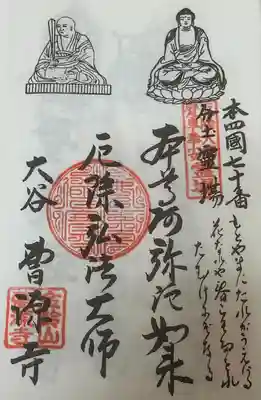 本四國七十番
分土靈場
もとやまにたれがうえける
花なれや春こそたをれ
たむけにぞなる
本尊阿弥陀如来
厄除弘法大師
大谷 曹源寺